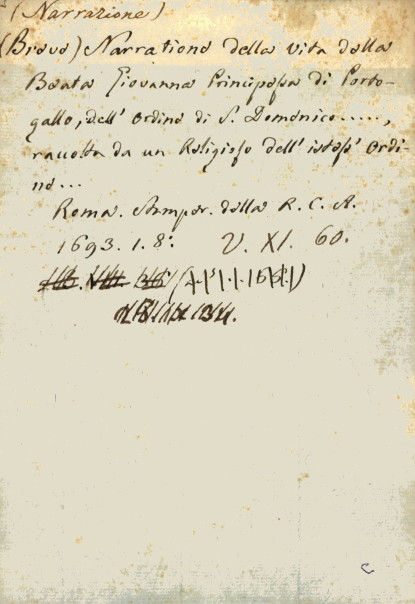 (Narrazione)
(Breve) Narratione della vita della
Beata Giovanna Principessa di Porto-
gallo, dell' ordine di S. Domenico.....,
raccolta da un Religioso dell' istess' Ordi-
ne...
Roma. Stamper. della R. C. A.
1693. 1. 8°. V. XI. 60.